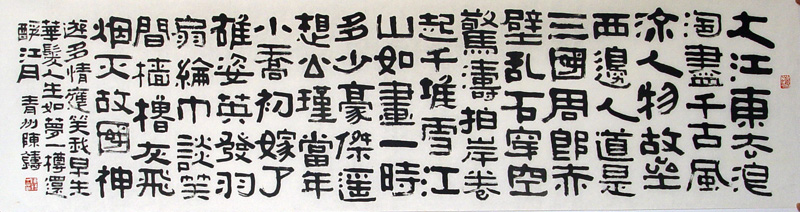 大江東去浪
淘盡千古風
流人物故垒
西邊人道是
三國周郎赤
壁乱石穿空
驚濤拍岸卷
起千堆雪江
山如畫一時
多少豪傑遥
想公瑾當年
小喬初嫁了
雄姿英發羽
扇綸巾談笑
間檣櫓灰飛
烟灭故國神
遊多情應笑我早生
華髮人生如夢一樽還
酹江月 青州陳鑄